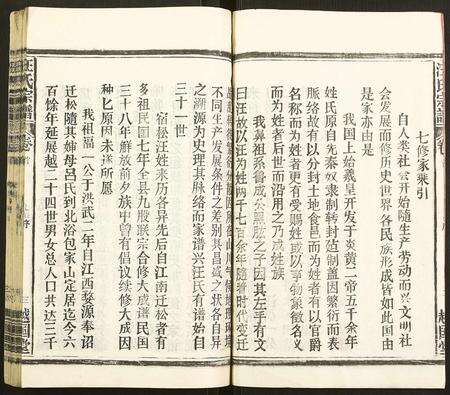 七修家乘引
自人类社会开始随生产劳动而兴文明社
会发展而修历史世界各民族形成皆如此国由
是家亦由是
我国上始羲皇开发于炎黄二帝五千余年
姓氏原自先秦奴隶制转封造制盖因繁衍而表
脉络故有以分封土地食邑而为姓者有以官爵
名称而为姓者更有受赐姓或以事物象徵名义
而为姓者后世而沿用之乃成姓族
我鼻祖系鲁成公黑肱之子因其左手有文
曰汪故以汪为姓两千七百余年随着时代变迁
不同生产发展条件之差别其昌盛之状各自异
之溯源为史理其脉络而家谱兴汪氏有谱始自
三十一世
宿松汪姓来历各异先后自江南迁松者有
多祖民国七年全县九股联宗合修大成谱民国
三十八年解放前夕族中曾有倡议续修大成因
种匕原因未遂所愿
我祖福一公于洪武二年自江西婺源奉诏
迁松随其婶母吕氏到北浴包家山定居迄今六
百馀年延展越二十四世男女总人口共达三千
汪氏宗譜
卷首
序
三
越國堂
汪氏宗譜
卷